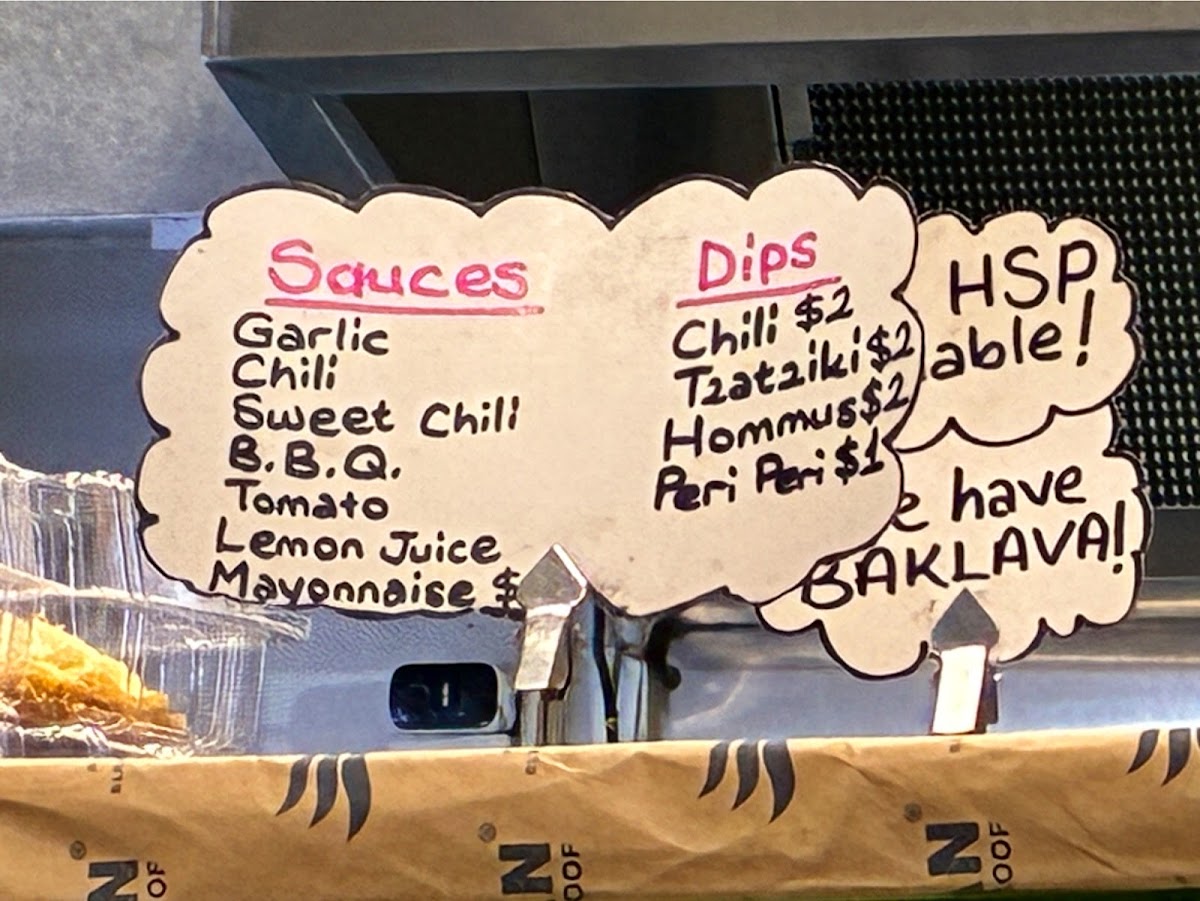 Sauces
Garlic
Chili
Sweet Chili
B.B.Q.
Tomato
Lemon Juice
Mayonnaise $
Dips
Chili $2
Tzatziki $2
Hommus $2
Peri Peri $1
HSP
able!
e have
BAKLAVA!